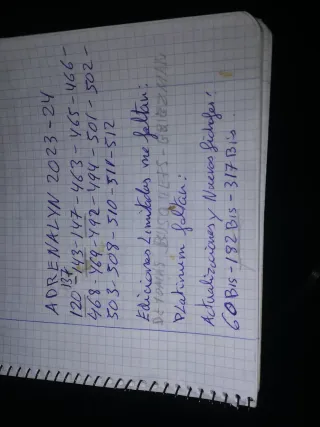 ADRENALYN 2023-24
137
120-143-147-463-465-466-
468-469-492-494-501-502-
503-508-510-511-512
Ediciones Limitadas me faltan:
Platinum faltan:
Actualizaciones y Nuevos fichajes:
60Bis-182Bis-317Bis